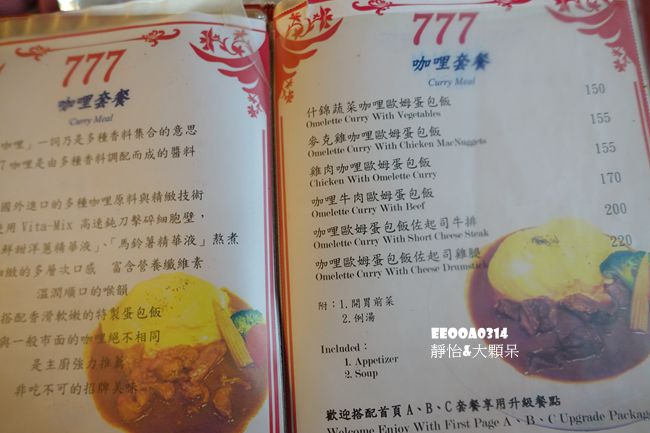 777
咖哩套餐
Curry Meal
咖哩」一詞乃是多種香料集合的意思
7 咖哩是由多種香料調配而成的醬料
國外進口的多種咖哩原料與精緻技術
使用 Vita-Mix 高速鈍刀擊碎細胞壁,
鮮甜洋蔥精華液」、「馬鈴薯精華液」熬煮
細緻的多層次口感 富含營養纖維素
溫潤順口的喉韻
搭配香滑軟嫩的特製蛋包飯
與一般市面的咖哩絕不相同
是主廚強力推薦
非吃不可的招牌美味
777
咖哩套餐
Curry Meal
什錦蔬菜咖哩歐姆蛋包飯 150
Omelette Curry With Vegetables
麥克雞咖哩歐姆蛋包飯 155
Omelette Curry With Chicken MacNuggets
雞肉咖哩歐姆蛋包飯 155
Chicken With Omelette Curry
咖哩牛肉歐姆蛋包飯 170
Omelette Curry With Beef
咖哩歐姆蛋包飯佐起司牛排 200
Omelette Curry With Short Cheese Steak
咖哩歐姆蛋包飯佐起司雞腿 220
Omelette Curry With Cheese Drumstick
附:1. 開胃前菜
2. 例湯
Included:
1. Appetizer
2. Soup
EEOOA0314
靜怡&大顆呆
歡迎搭配首頁 A、B、C 套餐享用升級餐點
Welcome Enjoy With First Page A、B、C Upgrade Package